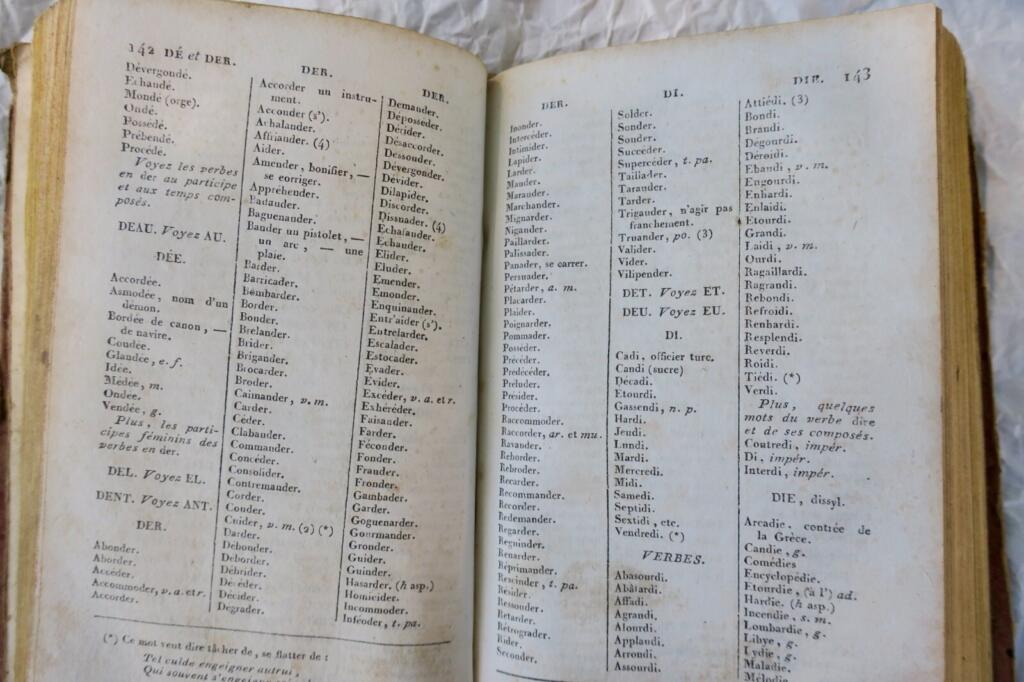 142 DÉ et DER.
Dévergondé.
Echaudé.
Mondé (orge).
Ondé.
Possédé.
Prébendé.
Procédé.
Voyez les verbes
en der au participe
et aux temps com-
posés.
DEAU. Voyez AU.
DÉE.
Accordée.
Asmodée, nom d'un
démon.
Bordée de canon, —
de navire.
Coudée.
Glandée, e. f.
Idée.
Médée, m.
Ondée.
Vendée, g.
Plus, les parti-
cipes féminins des
verbes en der.
DEL. Voyez EL.
DENT. Voyez ANT.
DER.
Abonder.
Aborder.
Accéder.
Accommoder, v. a. et r.
Accorder.
DER.
Accorder un instru-
ment.
Acconder (s').
Achalander.
Affriander. (4)
Aider.
Amender, bonifier, —
se corriger.
Appréhender.
Badauder.
Baguenander.
Bander un pistolet, —
un arc, — une
plaie.
Barder.
Barricader.
Bombarder.
Border.
Bonder.
Brelander.
Brider.
Brigander.
Brocarder.
Broder.
Caimander, v. m.
Carder.
Céder.
Clabauder.
Commander.
Concéder.
Consolider.
Contremander.
Corder.
Couder.
Cuider, v. m. (2) (*)
Darder.
Débonder.
Déborder.
Débrider.
Décéder.
Décider.
Dégrader.
DER.
Demander.
Déposséder.
Décider.
Désaccorder.
Dessouder.
Dévergonder.
Dévider.
Dilapider.
Discorder.
Dissuader. (4)
Echafauder.
Echauder.
Elider.
Eluder.
Emender.
Emonder.
Enquinander.
Entr'aider (s').
Entrelarder.
Escalader.
Estocader.
Evader.
Evider.
Excéder, v. a. et r.
Exhéréder.
Faisander.
Farder.
Féconder.
Fonder.
Frauder.
Fronder.
Gambader.
Garder.
Goguenarder.
Gourmander.
Gronder.
Guider.
Guinder.
Hasarder. (h asp.)
Homicider.
Incommoder.
Inféoder, t. pa.
(*) Ce mot veut dire tâcher de, se flatter de :
Tel cuide engeigner autrui,
Qui souvent s'engeigne
DER.
Inonder.
Intercéder.
Intimider.
Lapider.
Larder.
Mander.
Marauder.
Marchander.
Mignarder.
Nigander.
Paillarder.
Palissader.
Panader, se carrer.
Persuader.
Pétarder, a. m.
Placarder.
Plaider.
Poignarder.
Pommader.
Posséder.
Précéder.
Prédécéder.
Preluder.
Présider.
Procéder.
Raccommoder.
Raccorder, ar. et mu.
Ravauder.
Reborder.
Rebroder.
Recarder.
Recommander.
Recorder.
Redemander.
Regarder.
Reguinder.
Renarder.
Réprimander.
Rescinder, t. pa.
Résider.
Ressouder.
Retarder.
Rétrograder.
Rider.
Seconder.
DI.
Solder.
Sonder.
Souder.
Succéder.
Supercéder, t. pa.
Taillader.
Tarauder.
Tarder.
Trigauder, n'agir pas
franchement.
Truander, po. (3)
Valider.
Vider.
Vilipender.
DET. Voyez ET.
DEU. Voyez EU.
DI.
Cadi, officier turc.
Candi (sucre)
Décadi.
Etourdi.
Gassendi, n. p.
Hardi.
Jeudi.
Lundi.
Mardi.
Mercredi.
Midi.
Samedi.
Septidi.
Sextidi, etc.
Vendredi. (*)
VERBES.
Abasourdi.
Abâtardi.
Affadi.
Agrandi.
Alourdi.
Applaudi.
Arrondi.
Assourdi.
DIE. 143
Attiédi. (3)
Bondi.
Brandi.
Dégourdi.
Déroidi.
Ebaudi, v. m.
Engourdi.
Enhardi.
Enlaidi.
Etourdi.
Grandi.
Laidi, v. m.
Ourdi.
Ragaillardi.
Ragrandi.
Rebondi.
Refroidi.
Renhardi.
Resplendi.
Reverdi.
Roidi.
Tiédi. (*)
Verdi.
Plus, quelques
mots du verbe dire
et de ses composés.
Contredi, impér.
Di, impér.
Interdi, impér.
DIE, dissyl.
Arcadie, contrée de
la Grèce.
Candie, g.
Comédies
Encyclopédie.
Etourdie, (à l') ad.
Hardie. (h asp.)
Incendie, s. m.
Lombardie, g.
Libye, g.
Lydie, g.
Maladie.
Mélodie